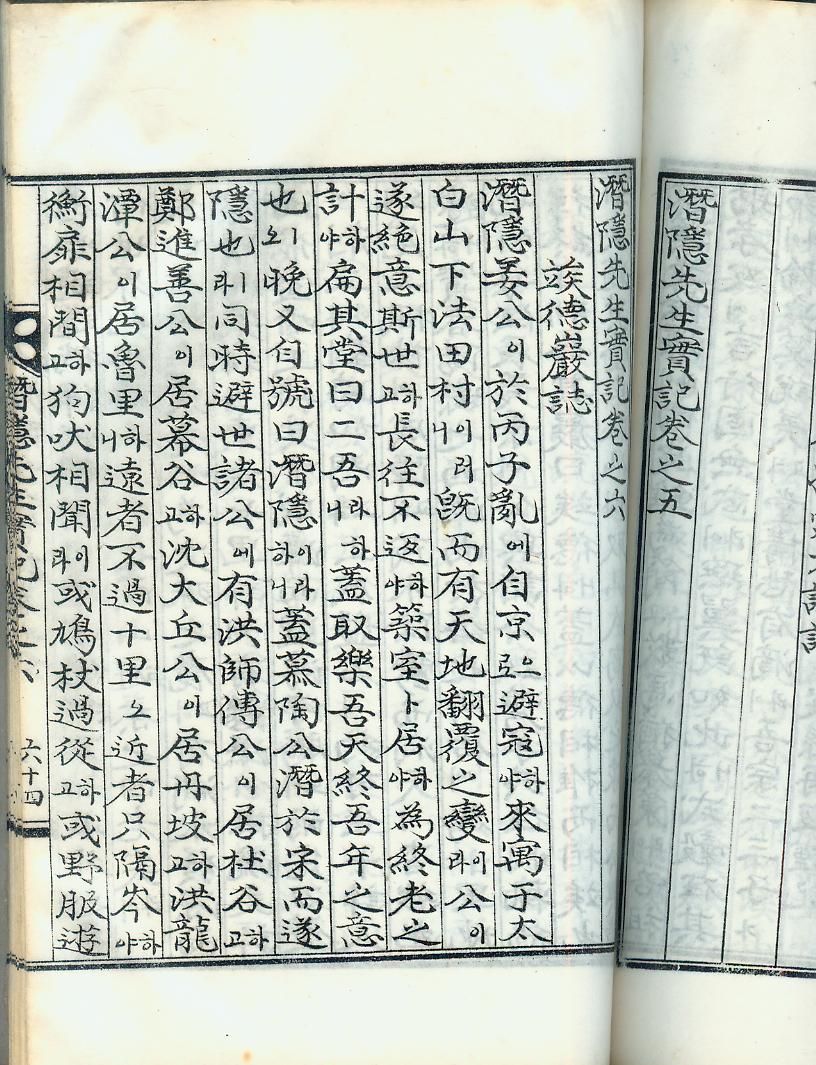 潛隱先生實記卷之五
潛隱先生實記卷之六
竢德巖誌
潛隱姜公이於丙子亂에自京으로避寇하야來寓于太
白山下法田村이러니旣而有天地翻覆之變이라公이
遂絶意斯世하고長往不返하야築室卜居하야為終老之
計하야扁其堂曰二吾라하니蓋取樂吾天終吾年之意
也오晚又自號曰潛隱이라하니蓋慕陶公潛於宋而遂
隱也라同時避世諸公에有洪師傅公이居杜谷하고
鄭進善公이居幕谷하고沈大丘公이居丹坡하고洪龍
潭公이居魯里하니遠者不過十里오近者只隔岑하야
衡扉相間하고狗吠相聞이라或鳩杖過從하고或野服遊
潛隱先生實記卷之六
六十四